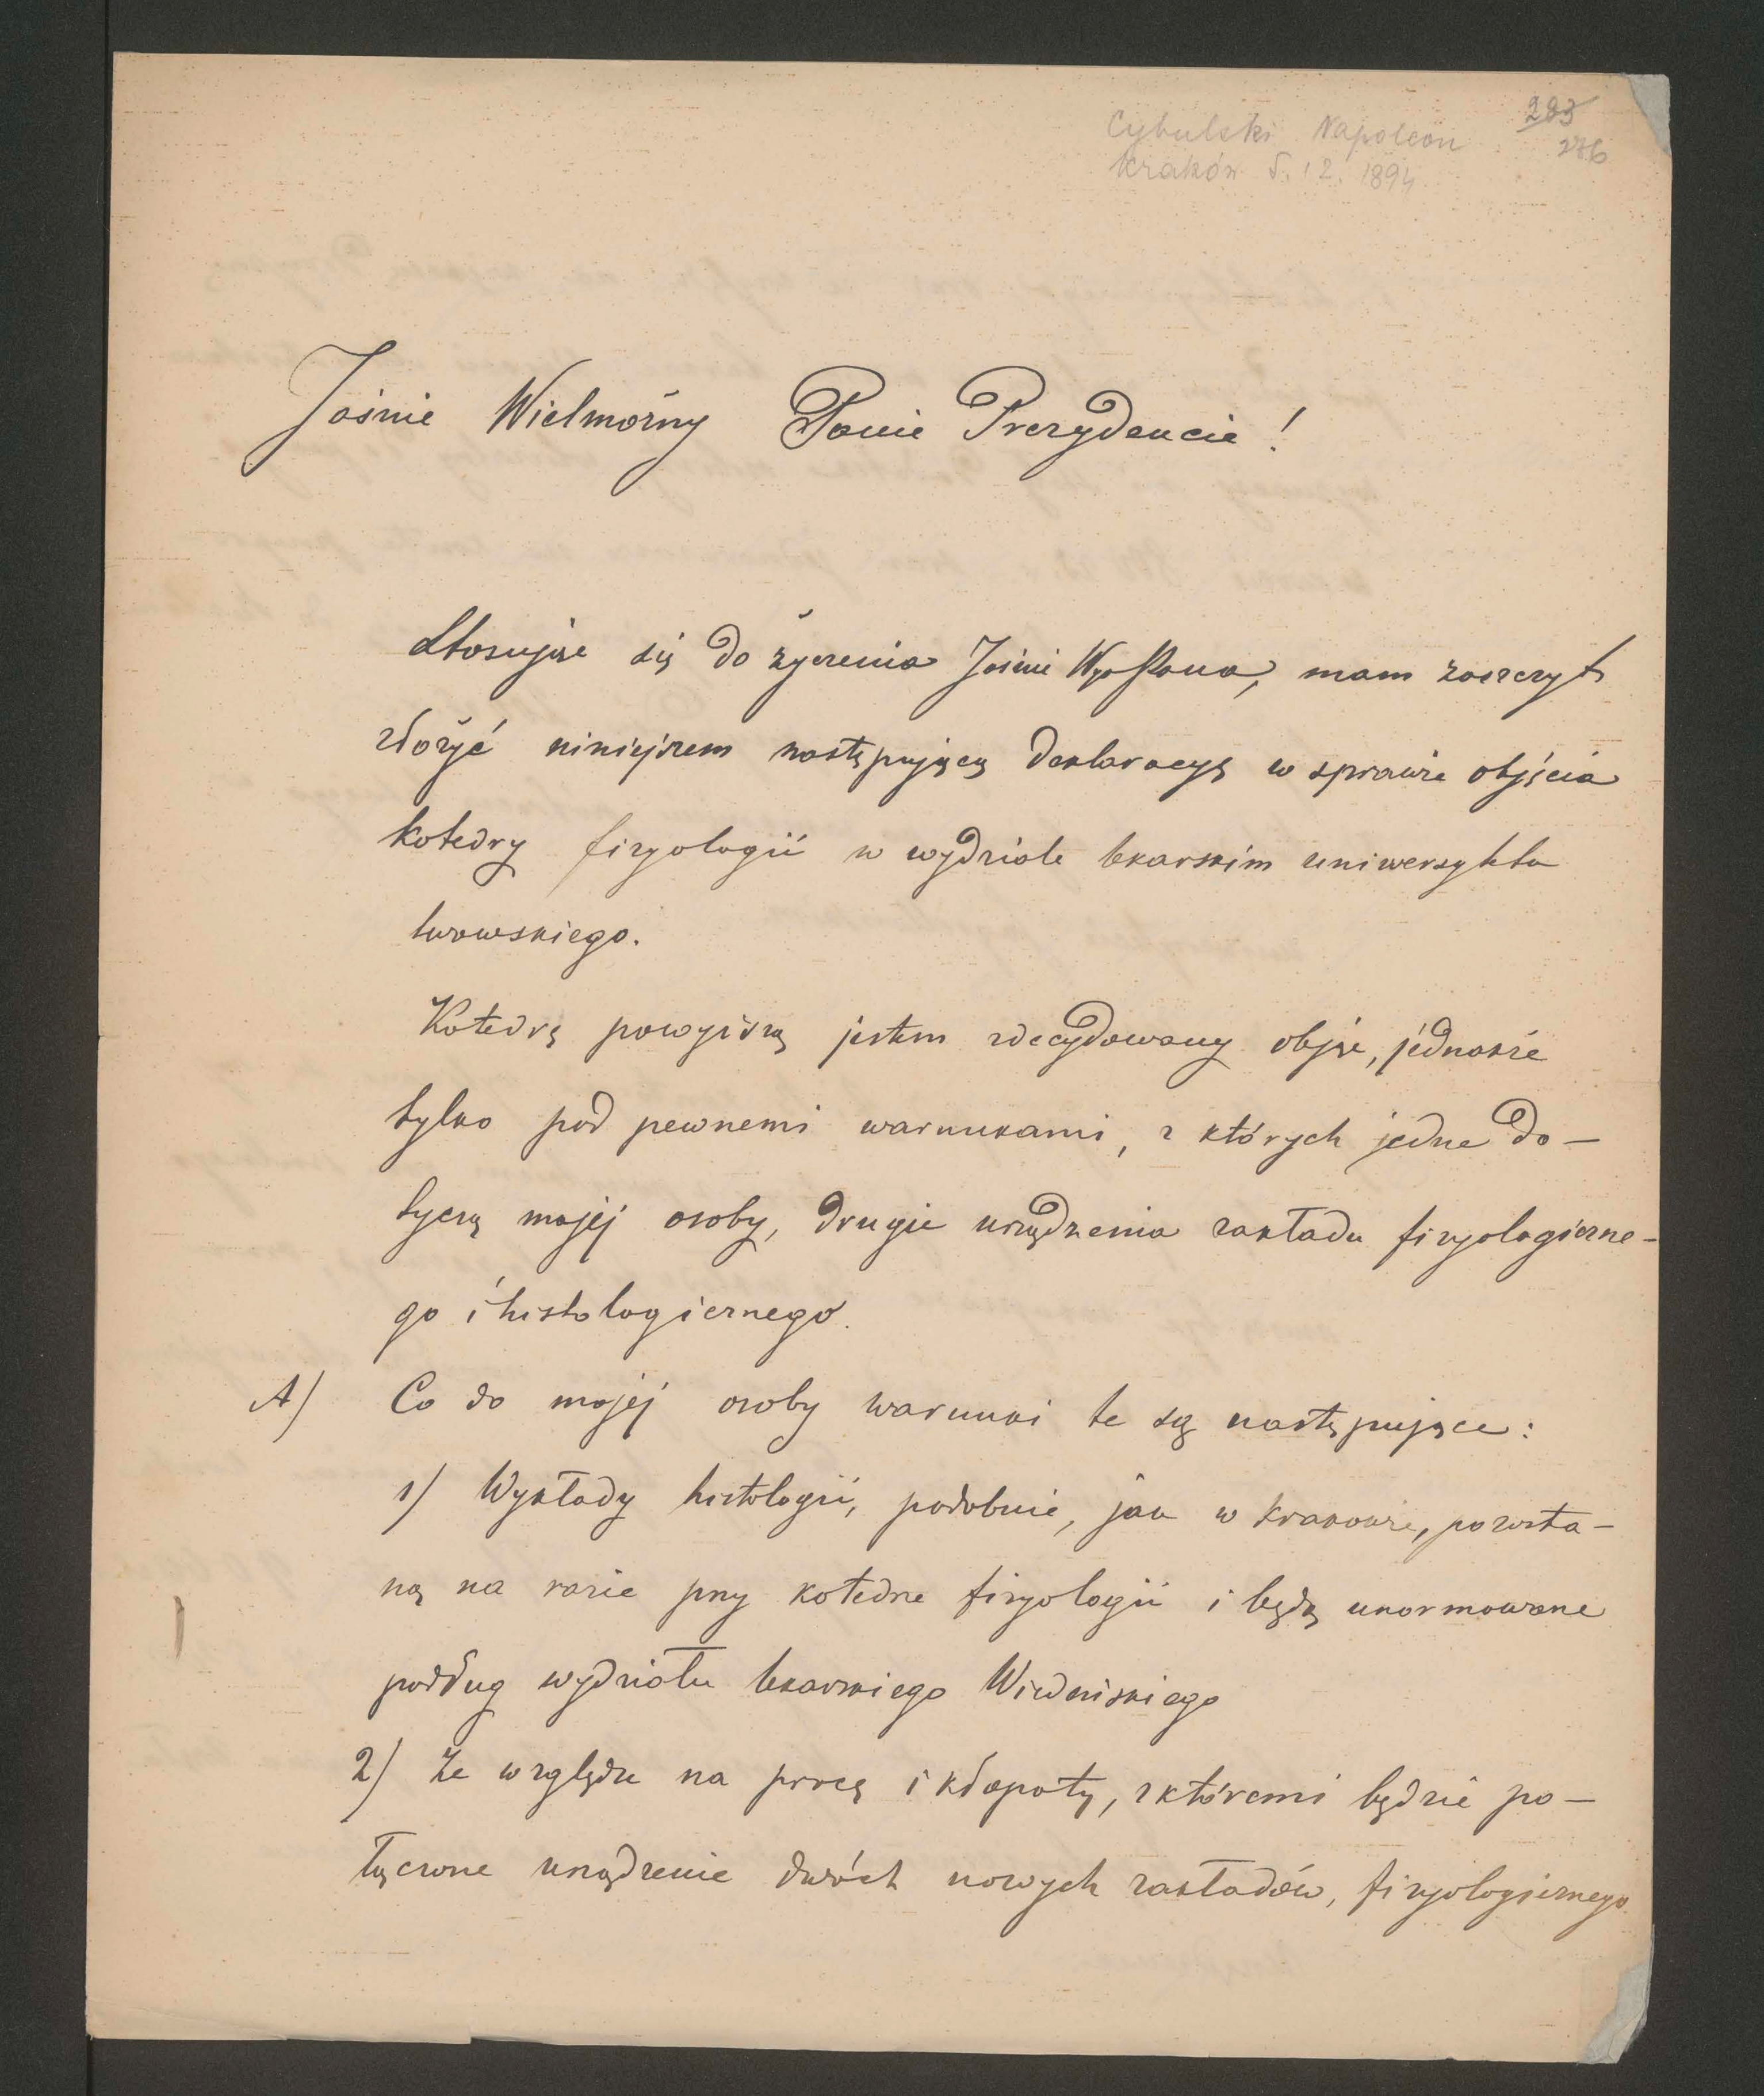 Cybulski Napoleon
Kraków 5.12.1894
283
276
Jaśnie Wielmożny Panie Prezydencie!
Stosując się do życzenia Jaśnie Wgo Pana, mam zaszczyt
złożyć niniejszem następującą deklaracyę w sprawie objęcia
katedry fizyologii w wydziale lekarskim uniwersytetu
lwowskiego.
Katedrę powyższą jestem zdecydowany objąć, jednakże
tylko pod pewnemi warunkami, z których jedne do-
tyczą mojej osoby, drugie urządzenia zakładu fizyologiczne-
go i histologicznego.
A) Co do mojej osoby warunki te są następujące:
1) Wykłady histologii, podobnie, jak w Krakowie, pozosta-
ną na razie przy katedrze fizyologii i będą unormowane
podług wydziału lekarskiego Wiedeńskiego
2) Ze względu na pracę i kłopoty, z któremi będzie po-
łączone urządzenie dwóch nowych zakładów, fizyologicznego